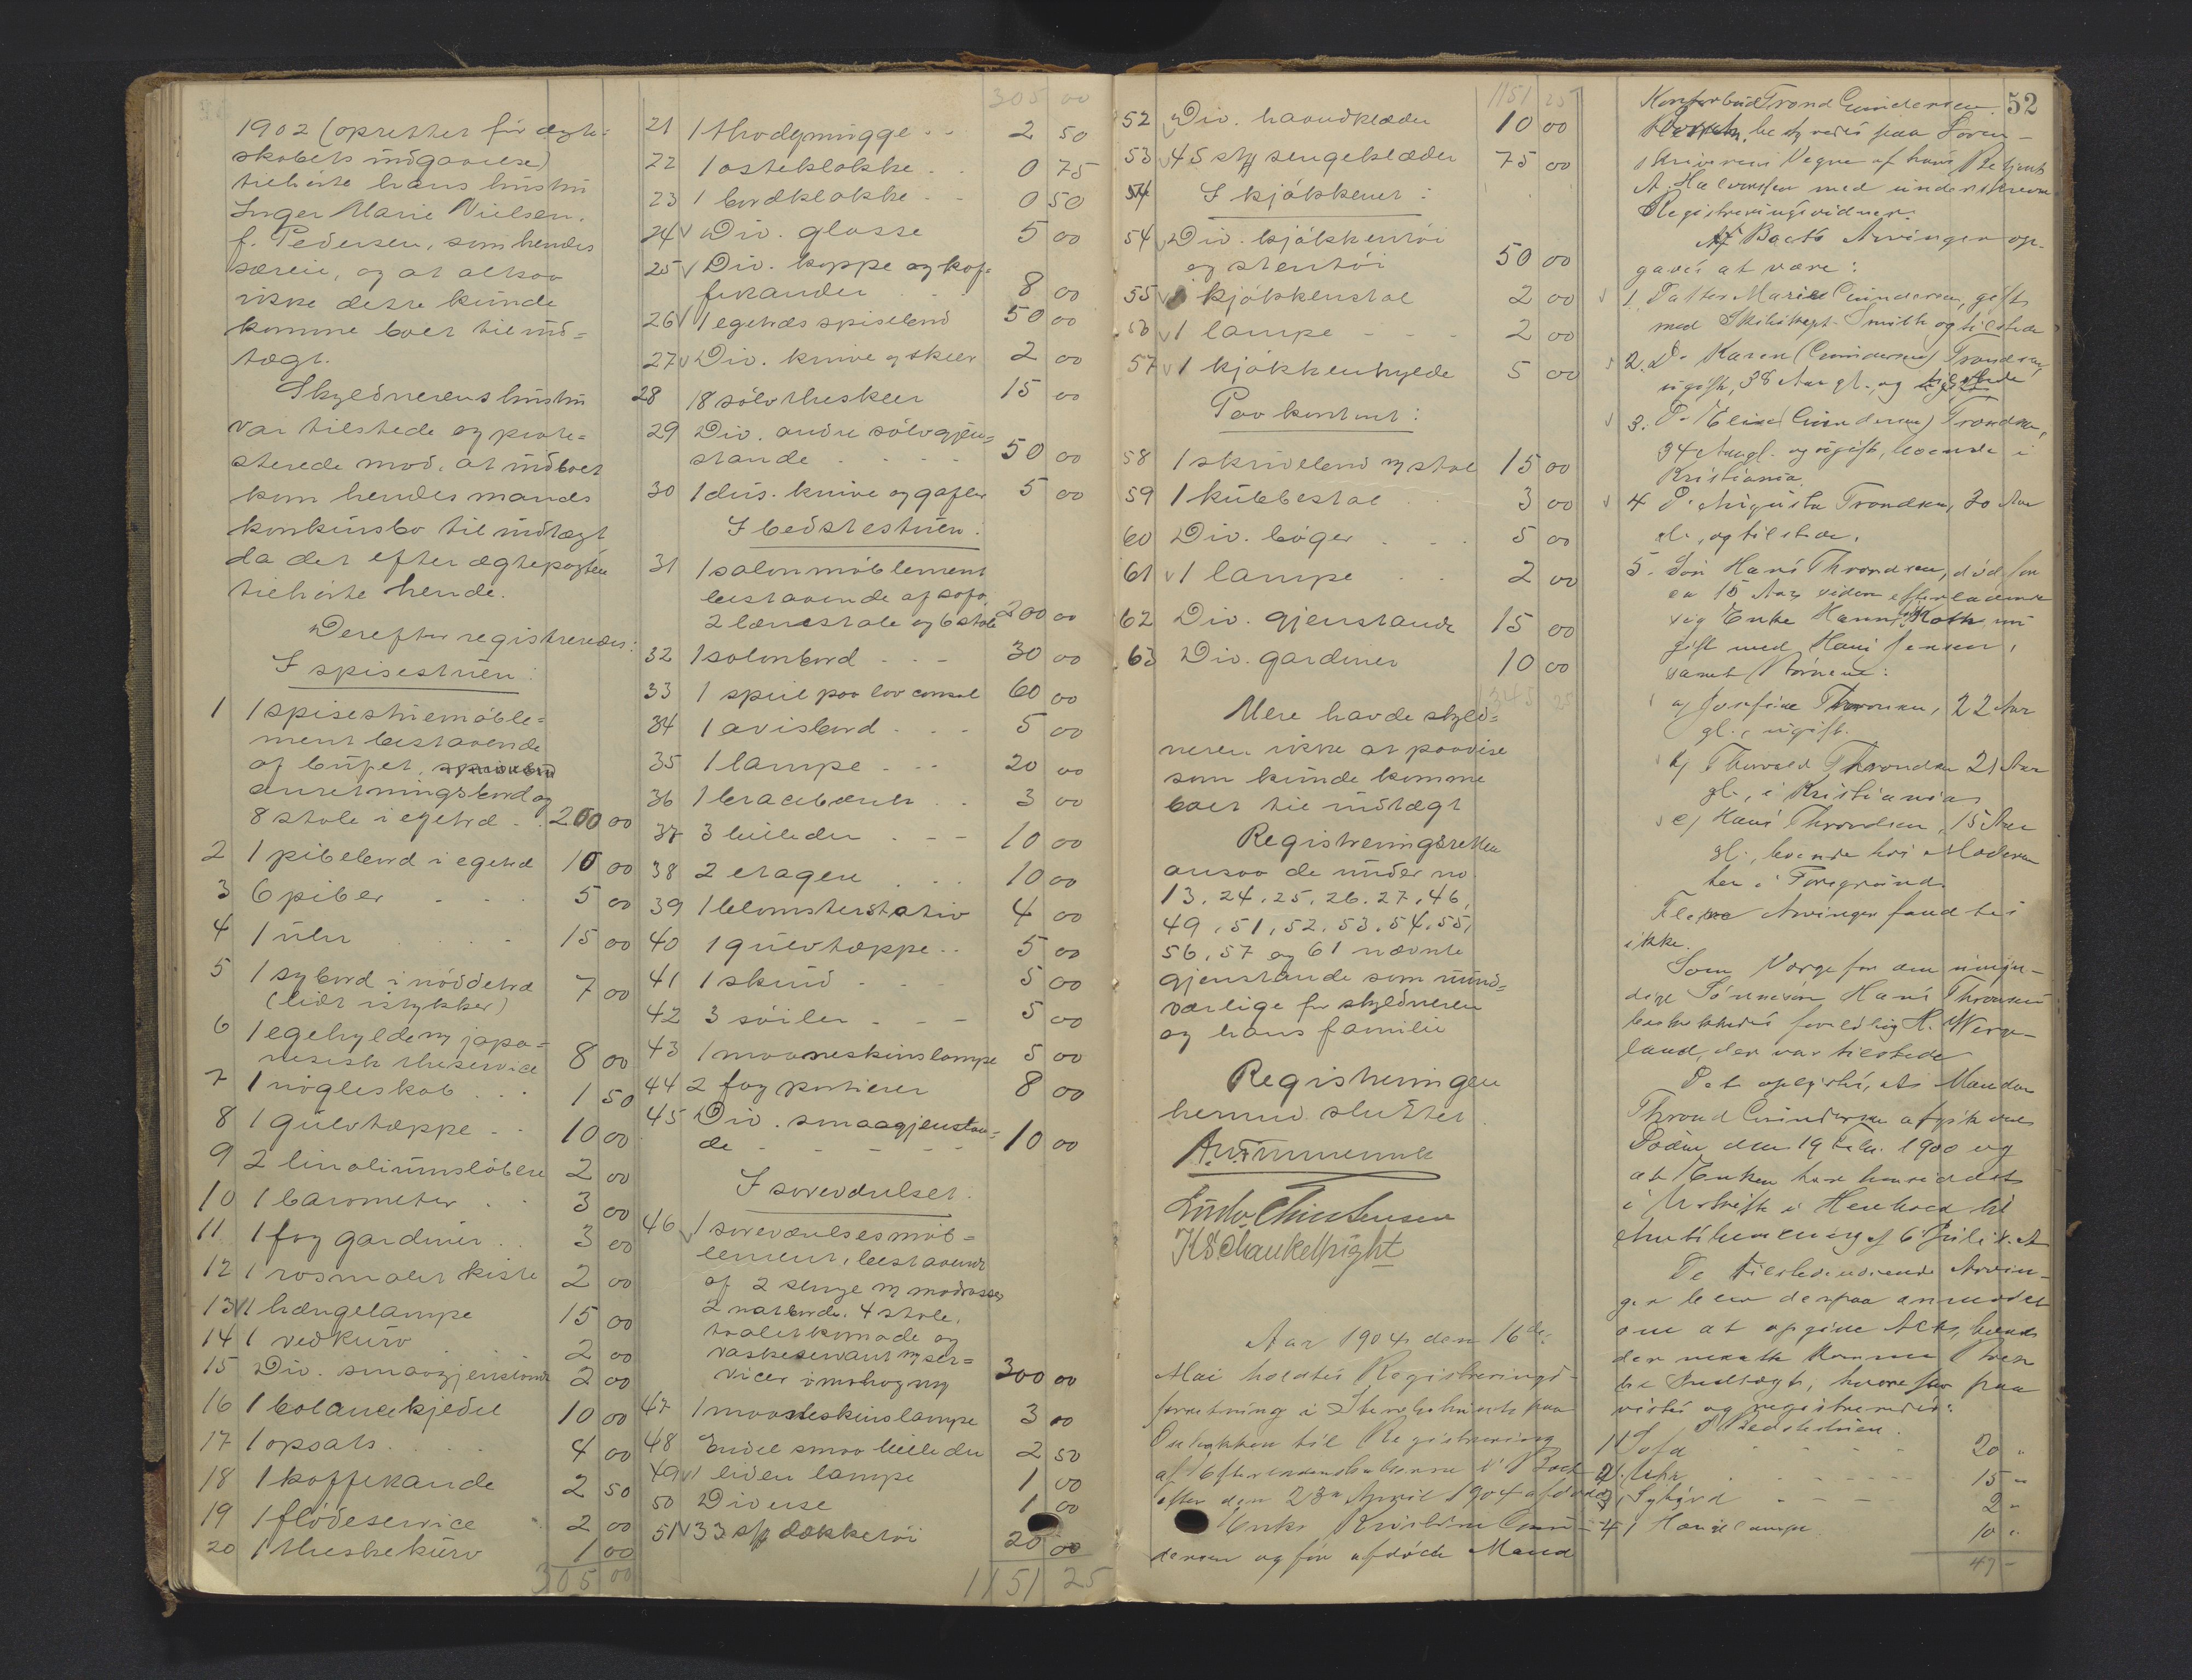 1902 (oprettet før ægte=
skabets indgaaelse)
tilhørte hans hustru
Inger Marie Nielsen,
f. Pedersen, som hendes
særeie, og at altsaa
ikke dette kunde
komme boet til ind=
tægt.
Skyldnerens hustru
var tilstede og prote=
sterede mod, at indboet
kom hendes mands
konkursbo til indtægt
da det efter ægtepagten
tilhørte hende.
Derefter registreredes:
I spisestuen:
1 1 spisestuemøble=
ment bestaaende
af bufet, spisebord
anretningsbord og
8 stole i egetræ 200 00
2 1 pibebord i egetræ 10 00
3 6 piber 5 00
4 1 uhr 15 00
5 1 sybord i nøddetræ
(lidt istykker) 7 00
6 1 egehylde m japa=
nesisk theservice 8 00
7 1 nøgleskab 1 50
8 1 gulvtæppe 10 00
9 2 linoliumsløbere 2 00
10 1 barometer 3 00
11 1 fag gardiner 3 00
12 1 rosmalet kiste 2 00
13 1 hængelampe 15 00
14 1 vedkurv 2 00
15 Div. smaagjenstande 2 00
16 1 balancekjedel 10 00
17 1 opsats 4 00
18 1 kaffekande 2 50
19 1 flødeservice 2 00
20 1 theskekurv 1 00
305 00
305 00
21 1 thedymugge 2 50
22 1 osteklokke 0 75
23 1 bordklokke 0 50
24 Div. glasse 5 00
25 Div. koppe og kaf=
fekander 8 00
26 1 egetræs spisebord 50 00
27 Div. knive og skeer 2 00
28 18 sølvtheskeer 15 00
29 Div. andre sølvgjen=
stande 50 00
30 1 dus. knive og gafler 5 00
I bedstestuen:
31 1 salonmøblement
bestaaende af sofa,
2 lænestole og 6 stole 200 00
32 1 salonbord 30 00
33 1 speil paa lav consol 60 00
34 1 avisbord 5 00
35 1 lampe 20 00
36 1 bracebænk 3 00
37 3 billeder 10 00
38 2 etagere 10 00
39 1 blomsterstativ 4 00
40 1 gulvtæppe 5 00
41 1 skind 5 00
42 3 søiler 5 00
43 1 maaneskinslampe 5 00
44 2 fag portierer 8 00
45 Div. smaagjenstan=
de 10 00
I soveværelset.
46 1 soveværelsesmøb=
lement, bestaaende
af 2 senge m madrasser
2 natborde, 4 stole,
toaletkomode og
vaskeservant m ser=
vicer i mahogny 300 00
47 1 maaneskinslampe 3 00
48 Endel smaa billeder 2 50
49 1 liden lampe 1 00
50 Diverse 1 00
51 33 stk dækketøi 20 00
1151 25
1151 25
52 Div. haandklæder 10 00
53 45 stk sengeklæder 75 00
54 I kjøkkenet:
54 Div. kjøkkentøi
og stentøi 50 00
55 kjøkkenstol 2 00
56 1 lampe 2 00
57 1 kjøkkenhylde 5 00
Paa kontoret:
58 1 skrivebord m stol 15 00
59 1 kubbestol 3 00
60 Div. bøger 5 00
61 1 lampe 2 00
62 Div. gjenstande 15 00
63 Div. gardiner 10 00
1345 25
Mere havde skyld=
neren ikke at paavise
som kunde komme
boet til indtægt
Registreringsretten
ansaa de under no
13, 24, 25, 26, 27, 46,
49, 51, 52, 53, 54, 55,
56, 57 og 61 nævnte
gjenstande som uund=
værlige for skyldneren
og hans familie
Registreringen
hermed sluttet
Ludv. Christensen
K Schanke Wright
Aar 1904 den 16de
Mai holdtes Registrerings-
forretning i paa
til Registrering
af Bo
efter den 23de April 1904 afdøde
Enke Kristine Gun-
dersen og før afdøde Mand
52
Kontorbud Trond Gundersen.
Retten betjentes paa Soren-
skriverens Vegne af hans Betjent
A. Halvorsen med underskrevne
Registreringsvidner.
Af Boets Arvinger op-
gaves at være:
1. Datter Marie Gundersen, gift
med Smith og tilstede
2. D. Karen (Gundersen) Trondsen,
ugift, 38 Aar gl. og tilstede
3. D. Elise (Gundersen) Trondsen,
34 Aar gl. og ugift, boende i
Kristiania.
4 D. Augusta Trondsen, 30 Aar
gl., og tilstede.
5. Søn Hans Throndsen, død for
ca 15 Aar siden efterladende
sig Enke Hanna nu
gift med Hans Jensen,
samt Børnene:
a) Josefine Thronsen, 22 Aar
gl., ugift.
b) Thorvald Throndsen 21 Aar
gl., i Kristiania
c) Hans Throndsen, 15 Aar
gl., boende hos Moderen
her i Porsgrund.
Flere Arvinger fandtes
ikke.
Som Værge for den umyn-
dige Sønnesøn Hans Thronsen
beskikkedes foreløbig H. Werge-
land, der var tilstede
Det oplystes, at Manden
Thrond Gundersen afgik ved
Døden den 19 Febr. 1900 og
at Enken har hensiddet
i Uskifte i Henhold til
Anbt bevilling af 6 Juli s. A
De tilstedeværende Arvin-
ger blev derpaa anmodet
om at opgive Alt, hvad
der maatte komme Boet
til Indtægt, hvorefter paa
vistes og registreredes:
I Bedstestuen.
1 1 Sofa 20 "
2 1 Uhr 15 "
3 1 Sybord 2 "
4 1 Hængelampe 10 "
47 -